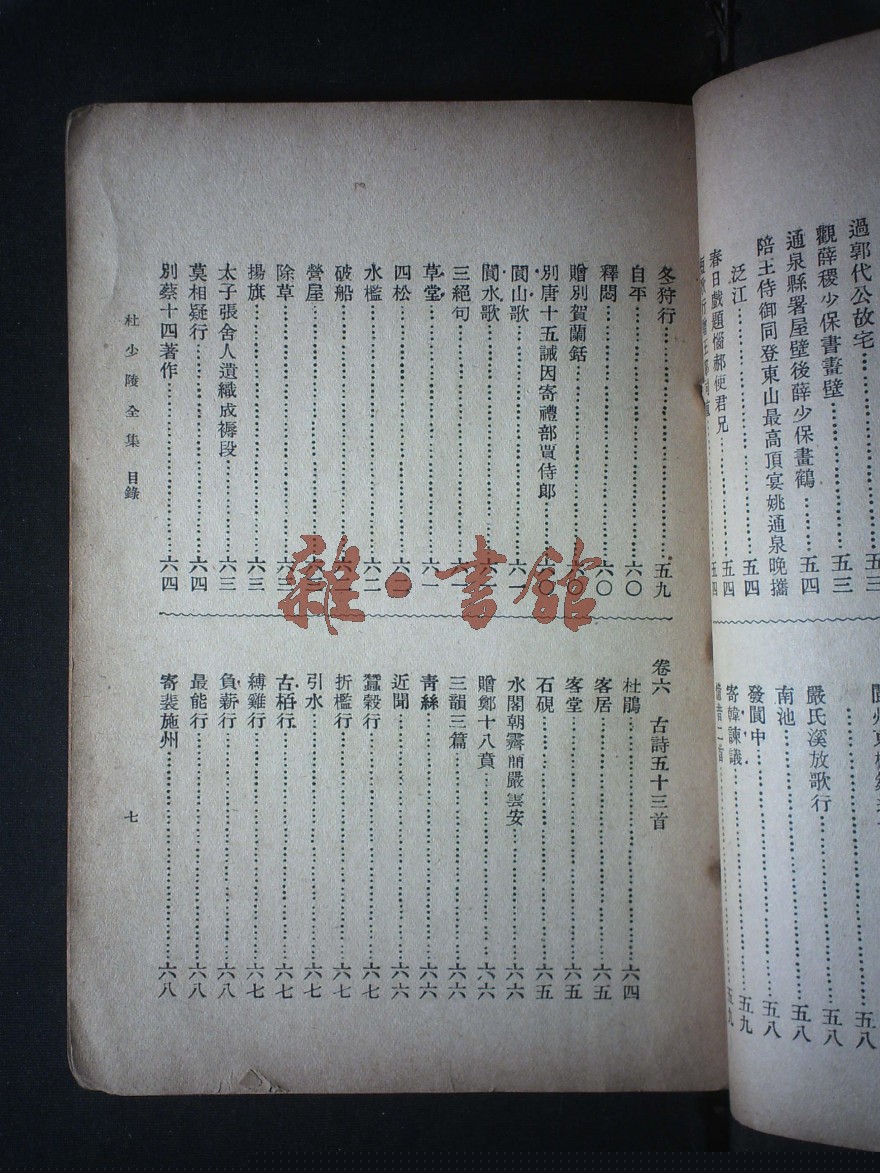 過郭代公故宅……五三
觀薛稷少保書畫壁……五三
通泉縣署屋壁後薛少保畫鶴……五四
陪王侍御同登東山最高頂宴姚通泉晚攜
泛江……五四
春日戲題惱郝使君兄……五四
五四
五八
五八
嚴氏溪放歌行……五八
南池……五八
發閬中……五八
寄韓諫議……五九
五九
冬狩行……五九
自平……六〇
釋悶……六〇
贈別賀蘭銛……六〇
別唐十五誡因寄禮部賈侍郎……六〇
閬山歌……六一
閬水歌……六一
三絕句
草堂……六一
四松……六二
水檻……六二
破船……六二
營屋
除草……六三
揚旗……六三
太子張舍人遺織成褥段……六三
莫相疑行……六四
別蔡十四著作……六四
卷六 古詩五十三首
杜鵑……六四
客居……六五
客堂……六五
石硯……六五
水閣朝霽簡嚴雲安……六六
贈鄭十八賁……六六
三韻三篇……六六
青絲……六六
近聞……六六
蠶穀行……六七
折檻行……六七
引水……六七
古栢行……六七
縛雞行……六七
負薪行……六八
最能行……六八
寄裴施州……六八
杜少陵全集 目錄 七
雜·書館